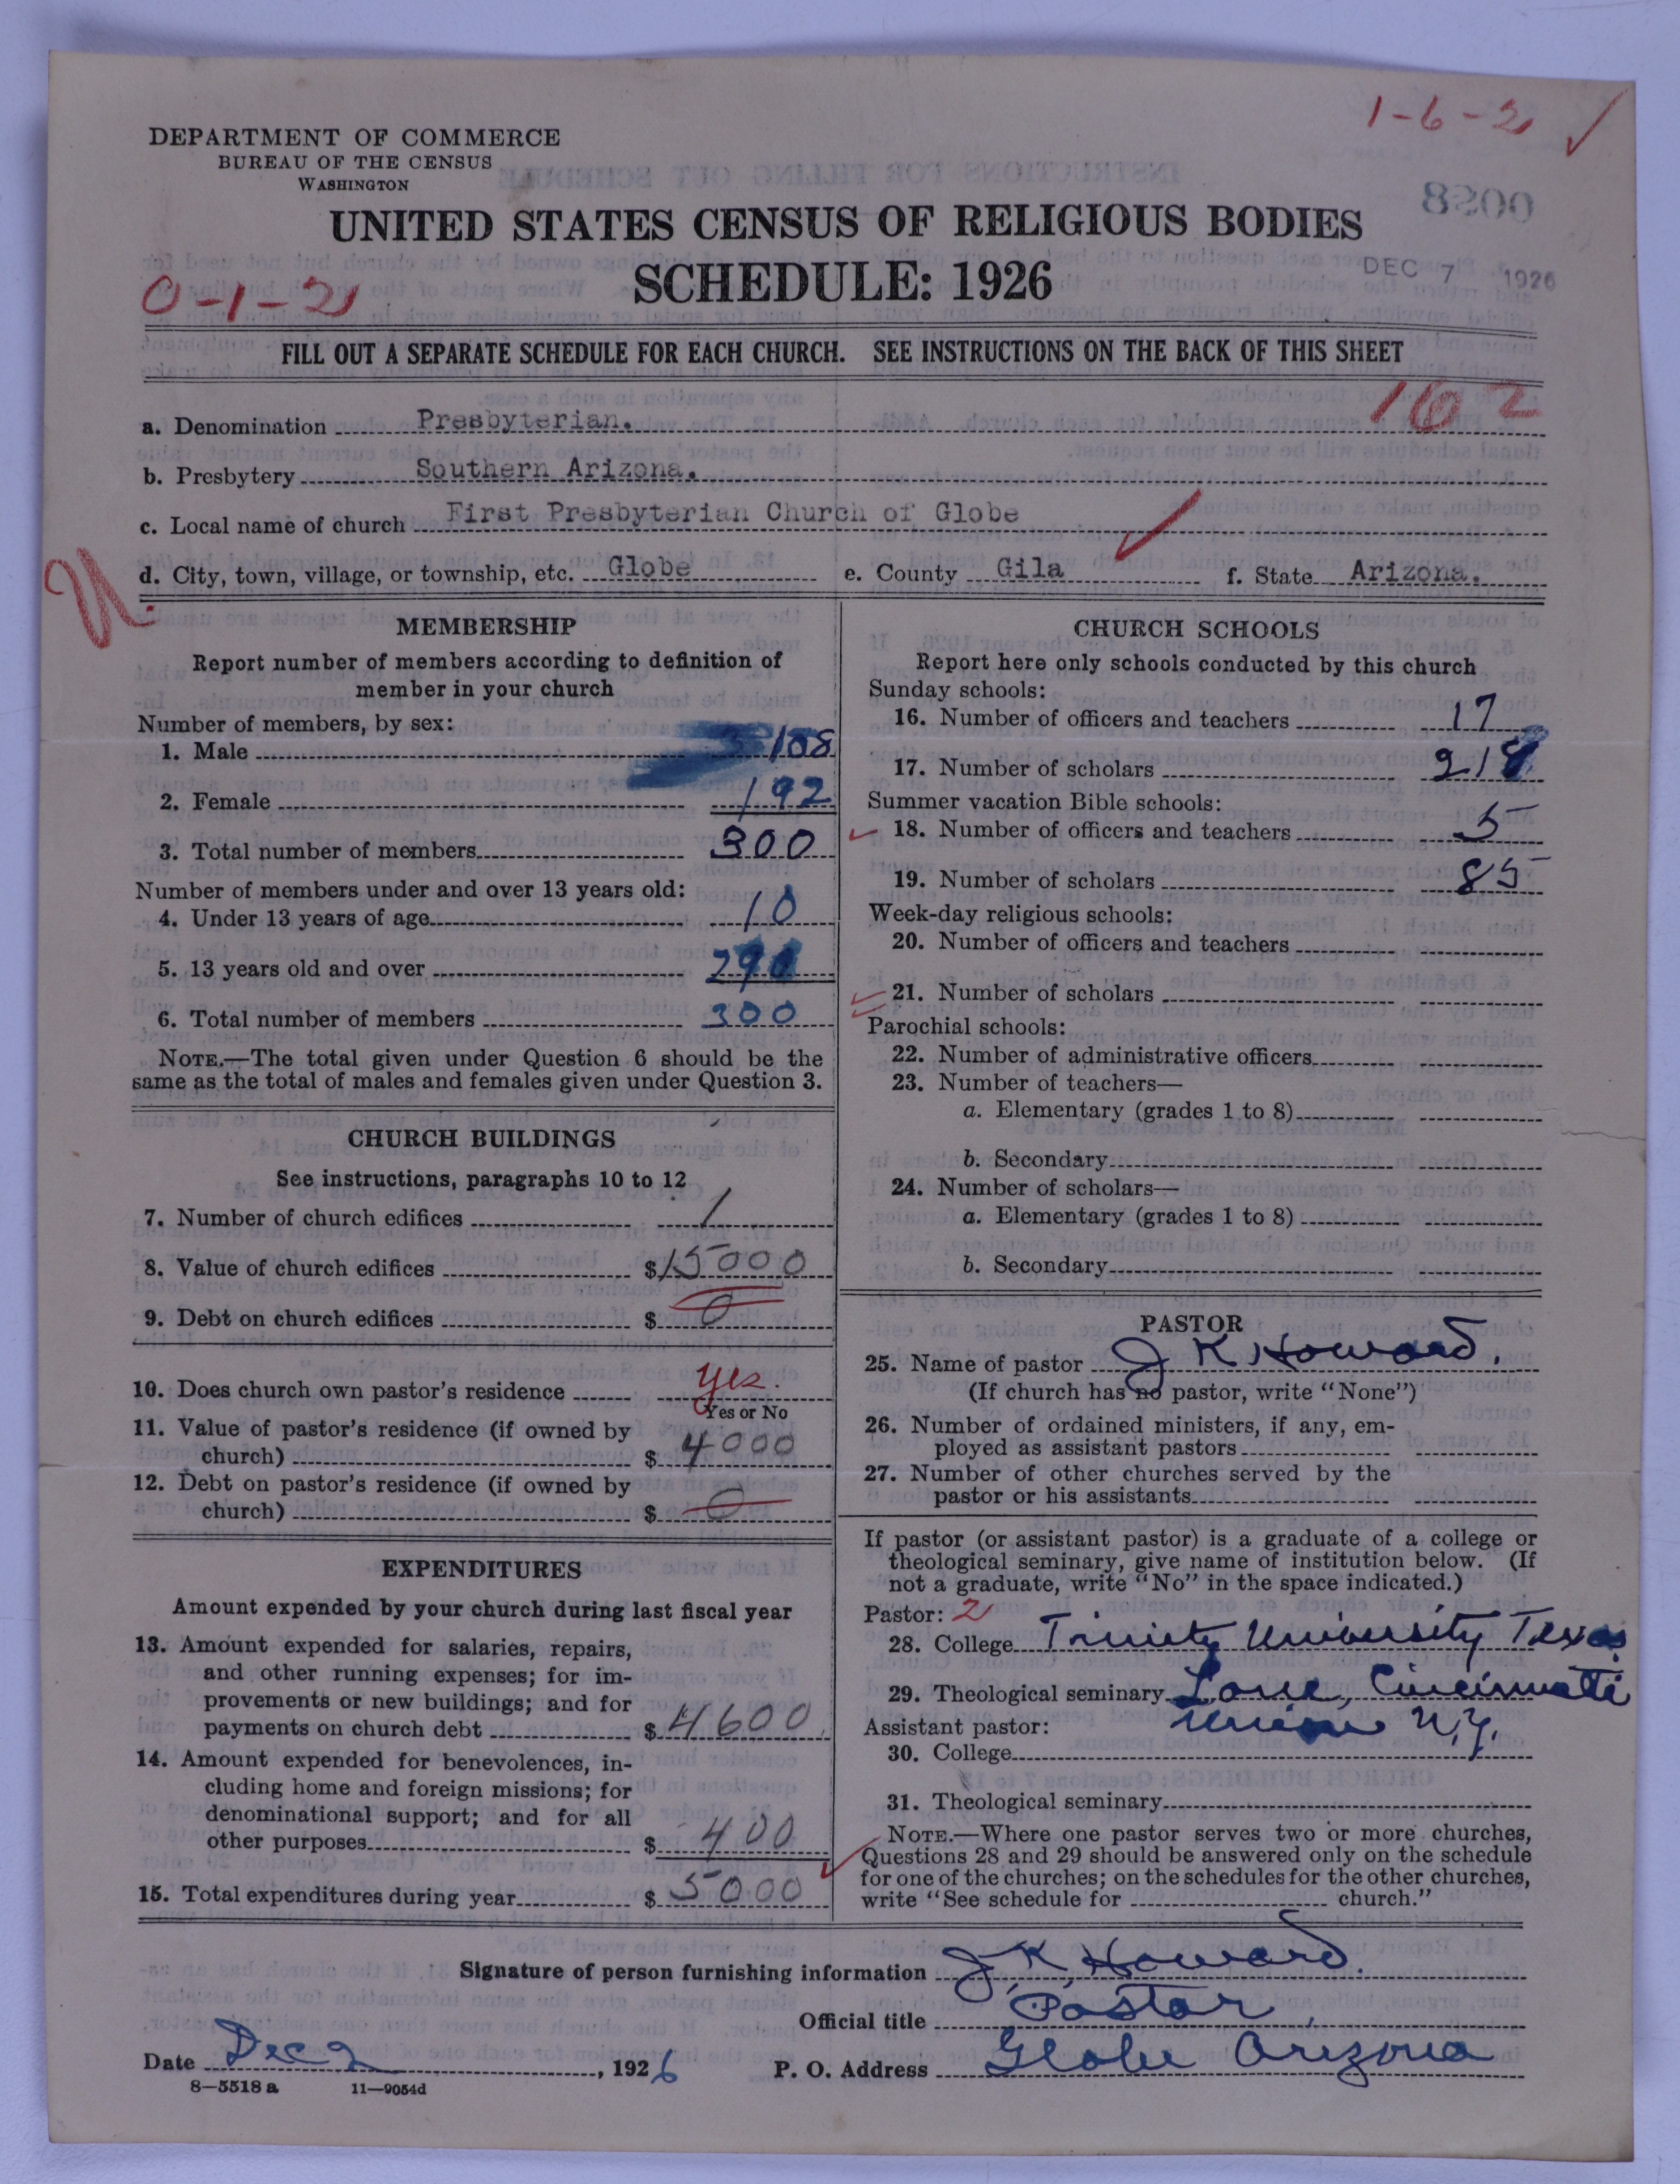 1-6-2
DEPARTMENT OF COMMERCE
BUREAU OF THE CENSUS
WASHINGTON
UNITED STATES CENSUS OF RELIGIOUS BODIES
SCHEDULE: 1926
DEC 7 1926
0-1-2
FILL OUT A SEPARATE SCHEDULE FOR EACH CHURCH. SEE INSTRUCTIONS ON THE BACK OF THIS SHEET
162
a. Denomination Presbyterian.
b. Presbytery Southern Arizona.
c. Local name of church First Presbyterian Church of Globe
d. City, town, village, or township, etc. Globe e. County Gila f. State Arizona.
MEMBERSHIP
Report number of members according to definition of
member in your church
Number of members, by sex:
1. Male 108
2. Female 192
3. Total number of members 300
Number of members under and over 13 years old:
4. Under 13 years of age 10
5. 13 years old and over 290
6. Total number of members 300
NOTE.—The total given under Question 6 should be the
same as the total of males and females given under Question 3.
CHURCH BUILDINGS
See instructions, paragraphs 10 to 12
7. Number of church edifices 1
8. Value of church edifices $15000
9. Debt on church edifices $ 0
10. Does church own pastor's residence yes.
Yes or No
11. Value of pastor's residence (if owned by
church) $ 4000
12. Debt on pastor's residence (if owned by
church) $ 0
EXPENDITURES
Amount expended by your church during last fiscal year
13. Amount expended for salaries, repairs,
and other running expenses; for im-
provements or new buildings; and for
payments on church debt $ 4600
14. Amount expended for benevolences, in-
cluding home and foreign missions; for
denominational support; and for all
other purposes $ 400
15. Total expenditures during year $ 5000
CHURCH SCHOOLS
Report here only schools conducted by this church
Sunday schools:
16. Number of officers and teachers 17
17. Number of scholars 218
Summer vacation Bible schools:
18. Number of officers and teachers 5
19. Number of scholars 85
Week-day religious schools:
20. Number of officers and teachers
21. Number of scholars
Parochial schools:
22. Number of administrative officers
23. Number of teachers—
a. Elementary (grades 1 to 8)
b. Secondary
24. Number of scholars—
a. Elementary (grades 1 to 8)
b. Secondary
PASTOR
25. Name of pastor J K Howard.
(If church has no pastor, write "None")
26. Number of ordained ministers, if any, em-
ployed as assistant pastors
27. Number of other churches served by the
pastor or his assistants
If pastor (or assistant pastor) is a graduate of a college or
theological seminary, give name of institution below. (If
not a graduate, write "No" in the space indicated.)
Pastor: 2
28. College Trinity University Texas
29. Theological seminary Lane, Cincinnatti
Assistant pastor: Union N.Y.
30. College
31. Theological seminary
NOTE.—Where one pastor serves two or more churches,
Questions 28 and 29 should be answered only on the schedule
for one of the churches; on the schedules for the other churches,
write "See schedule for church."
Signature of person furnishing information J. K. Howard.
Official title Pastor
Date Dec 2, 1926 P. O. Address Globe Arizona
8—5518 a 11—9054d